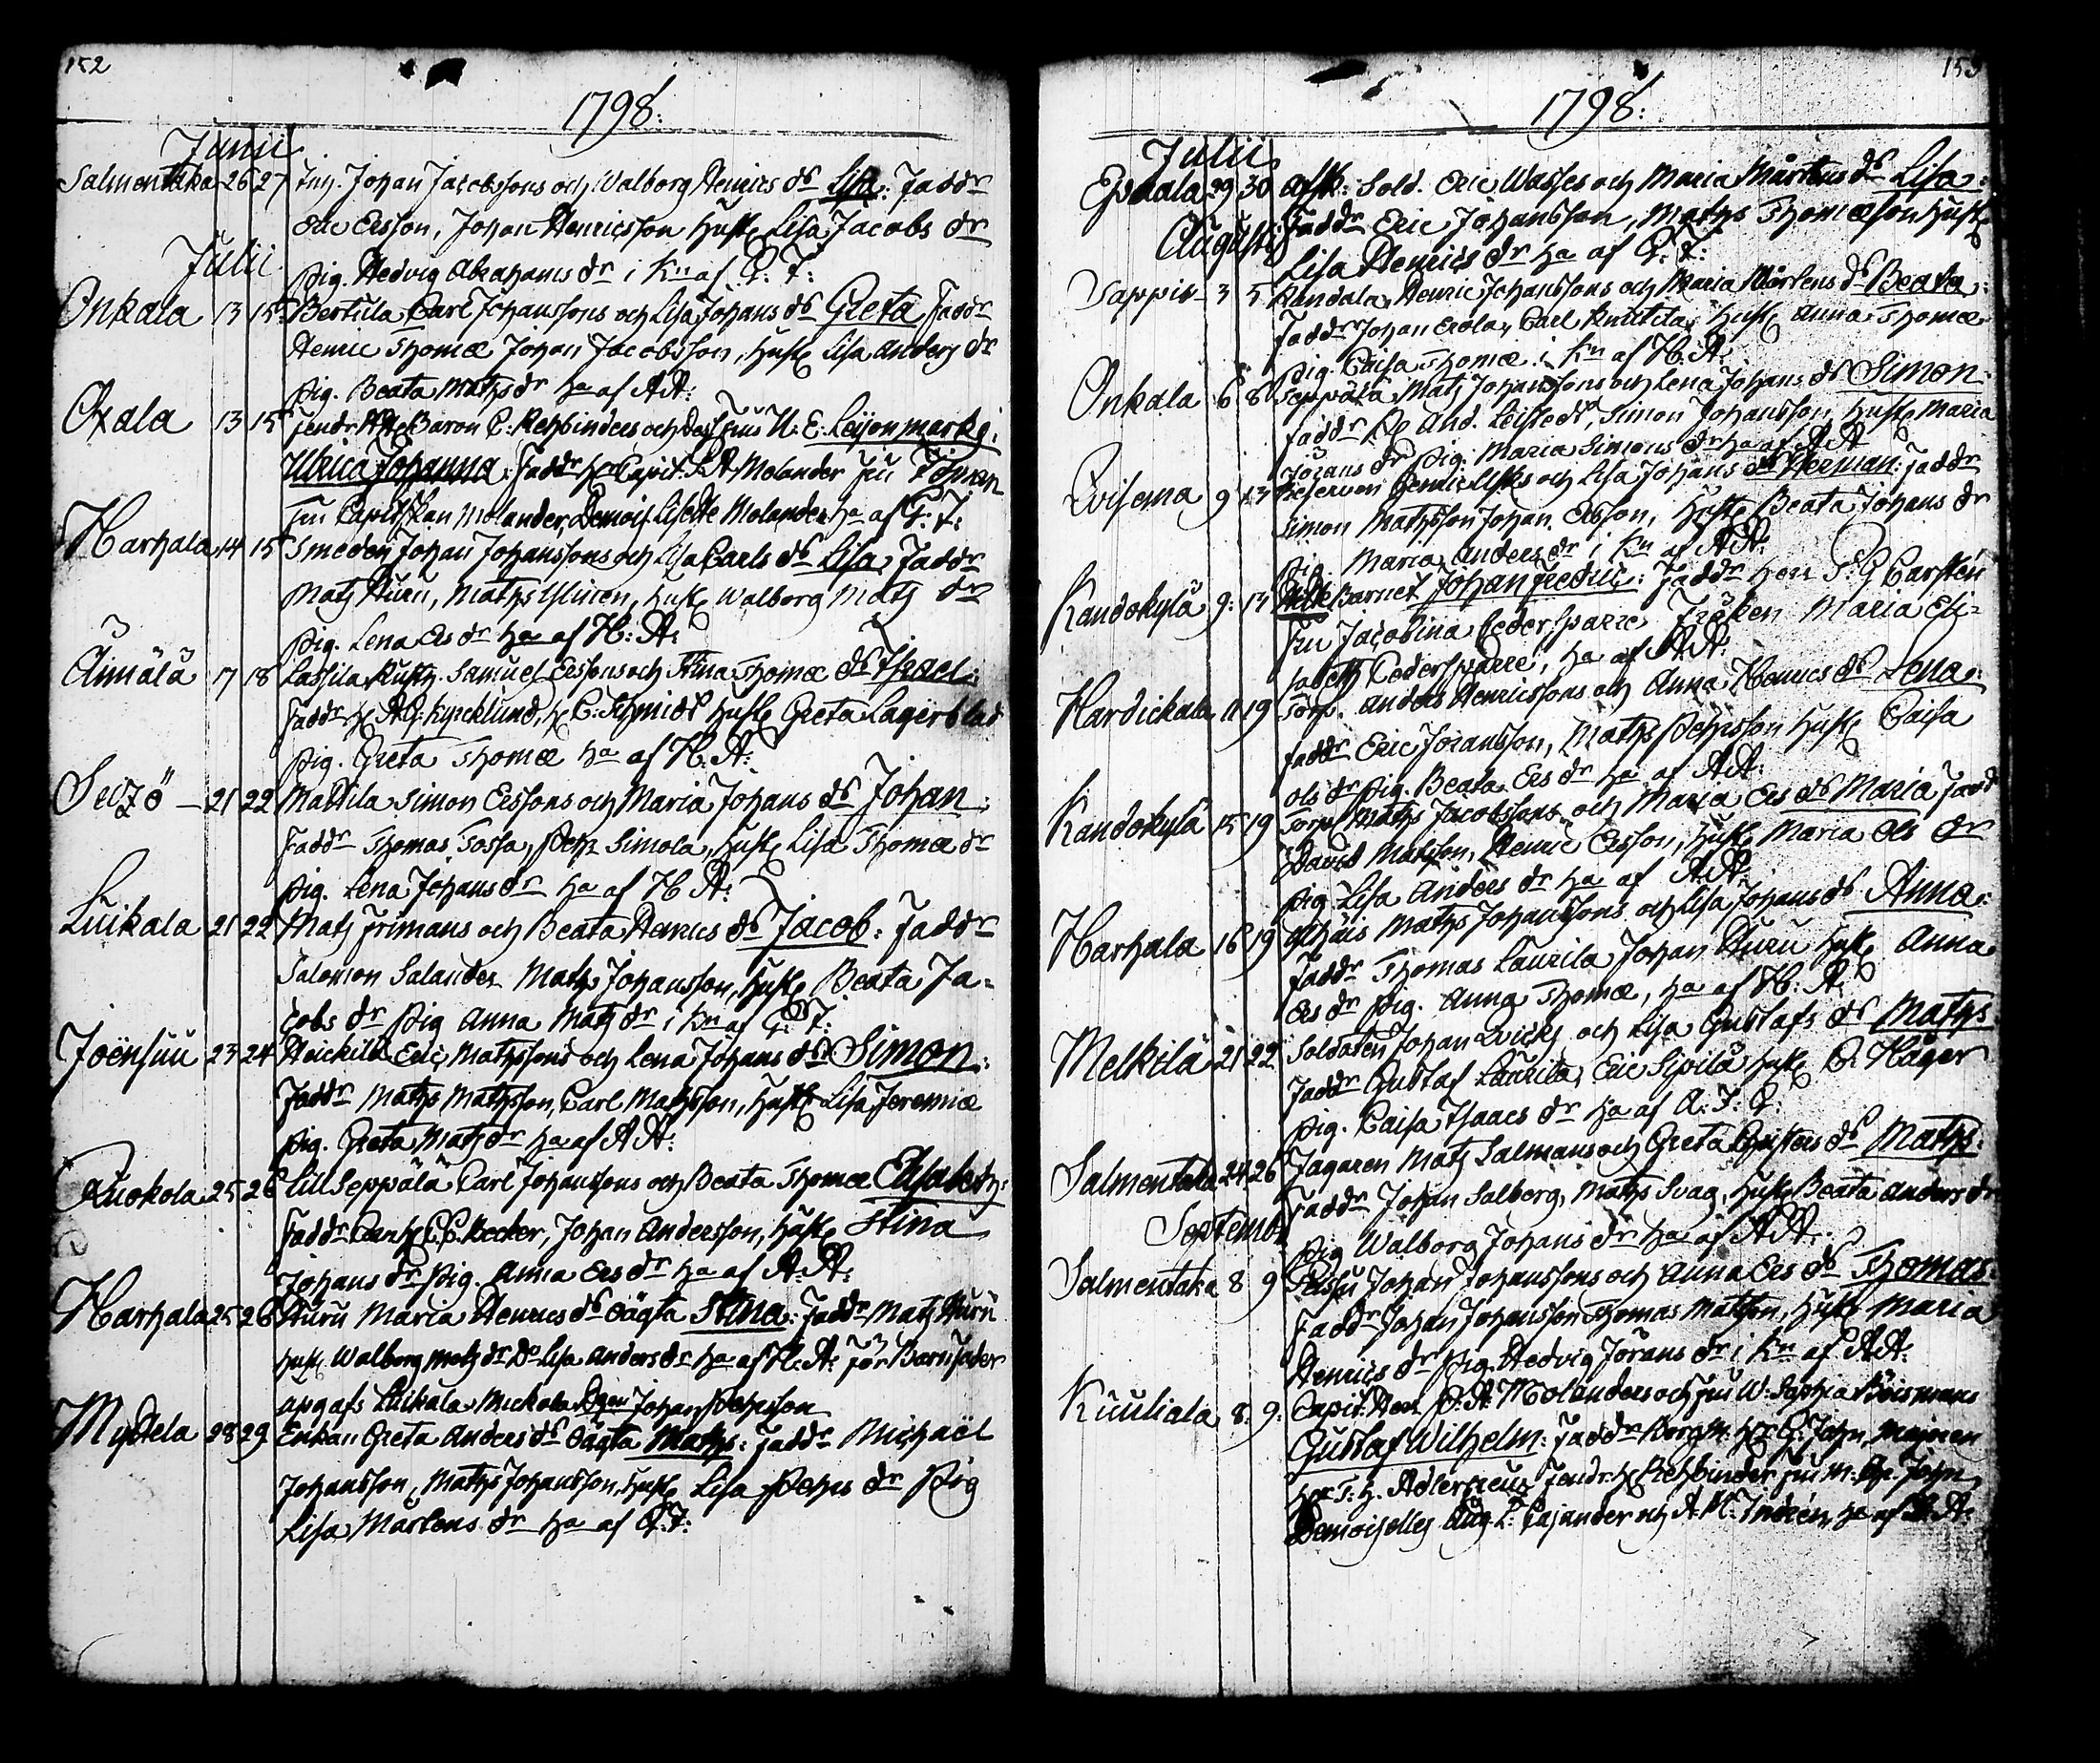 152
1798:
Junii
Salmentaka 26 27 Inh. Johan Jacobssons och Walborg Henrics ds Lisa: Faddr
Eric Ersson, Johan Henricsson Hust. Lisa Jacobs dr
Pig. Hedvig Abrahams dr i Kn af G: F:
Julii
Onkala 13 15 Bertula Carl Johanssons och Lisa Johans ds Greta Faddr
Henric Thomæ Johan Jacobsson, Hust. Lisa Anders dr
Pig. Beata Mats dr ha af AA:
Oxala 13 15 Fendr. Baron C: Rehbinders och dess Fru U: E: Leijonmarks:
Ulrica Johanna: Faddr Hr Capit. P. A. Molander Fru
Fru Capitskan Molander, Demois. Lisette Molander ha af G: F:
Harhala 14 15 Smeden Johan Johanssons och Lisa Carls ds Lisa, Faddr
Mats Huru, Maths Ylinen, Hust. Walborg Mats dr
Pig. Lena Ers dr ha af H: A:
Äimälä 17 18 Lassila Rusth. Samuel Erssons och Stina Thomæ ds Israel:
Faddr H. A G: Kyrcklund, H. C: Schmidt Hust. Greta Lagerblad
Pig. Greta Thomæ ha af H. A:
21 22 Mattila Simon Erssons och Maria Johans ds Johan:
Faddr Thomas Tossa, Pehr Simola, Hust. Lisa Thomæ dr
Pig. Lena Johans dr ha af H A:
Luikala 21 22 Mats Frimans och Beata Henrics ds Jacob: Faddr
Salomon Salander Maths Johansson, Hust. Beata Ja-
cobs dr Pig Anna Mats dr i Kn af G: F:
Joensuu 23 24 Heickilä Eric Mathssons och Lena Johans ds Simon:
Faddr Maths Mathsson, Carl Mathsson, Hust. Lisa Jeremiæ
Pig. Greta Mats dr ha af A A:
Ruokola 25 26 Lill Seppälä Carl Johanssons och Beata Thomæ Elisabeth:
Faddr Becker, Johan Andersson, Hust. Stina
Johans dr Pig. Anna Ers dr ha af A. A:
Harhala 25 26 Huru Maria Henrics ds oägta Stina: Faddr Mats Huru
Hust. Walborg Mats dr Do Lisa Anders dr ha af H: A: för Barnfader
upgafs Luikala Mickola Johan Pehrsson
Myttela 28 29 Enkan Greta Anders ds oägta Maths: Faddr Michaël
Johansson, Maths Johansson, Hust. Lisa Pehrs dr Pig
Lisa Martens dr ha af G. F:
153
1798:
Julii
29 30 Afsk: Sold. Eric Wasses och Maria Mårtens ds Lisa:
Faddr Eric Johansson, Maths Thomæson Hust.
Lisa Henrics dr ha af G. F:
Augusti
Sappi 3 5 Randala Henric Johanssons och Maria Mårtens ds Beata:
Faddr Johan Erola, Carl Anttila, Hust. Anna Thomæ
Pig. Caisa Thomæ i Kn af H. A:
Onkala 6 8 Seppälä Mats Johanssons och Lena Johans ds Simon
Faddr And. Leistedt, Simon Johansson, Hust. Maria
Jörans dr Pig. Maria Simons dr ha af A A
9 13 Reserven Henric Lisks och Lisa Johans ds Herman: Faddr
Simon Mathsson Johan Ersson, Hust. Beata Johans dr
Pig. Maria Anders dr i Kn af A A:
Kandokylä 9: 13 Barnet Johan Fredric: Faddr Herr P: G Carstén
Fru Jacobina Cedersparre Fröken Maria Eli-
sabeth Cedersparre, ha af A A:
Hardickala 11 19 Torp. Anders Henricssons och Anna Henrics ds Lena:
Faddr Eric Joransson, Maths Pehrsson Hust. Caisa
Ols dr Pig. Beata Ers dr ha af A A:
Kandokylä 15 19 Torp Maths Jacobssons och Maria Ers ds Maria Fadd
David Matsson, Henric Ersson, Hust. Maria Ols dr
Pig. Lisa Anders dr ha af A. A:
Harhala 16 19 Maths Johanssons och Lisa Johans ds Anna:
Faddr Thomas Laurila Johan Huru Hust. Anna
Ers dr Pig. Anna Thomæ, ha af H: A:
Melkilä 21 22 Soldaten Johan Qvicks och Lisa Gustafs ds Maths
Faddr Gustaf Laurila, Eric Sipilä Hust. C: Häger
Pig. Caisa Isaacs dr ha af A: F: G:
Salmentaka 24 26 Jägaren Mats Salmans och Greta Christers ds Maths:
Faddr Johan Salberg, Maths Svag, Hust. Beata Anders dr
Pig Walborg Johans dr ha af A A:
Septembr
Salmentaka 8 9 Pessu Johan Johanssons och Anna Ers ds Thomas:
Faddr Johan Johansson Thomas Matsson, Hust. Maria
Henrics dr Pig. Hedvig Jörans dr i Kn af A A:
Kuuliala 8: 9: Capit. Herr P. A. Molanders och Fru W: Sophia Boismans
Gustaf Wilhelm: Faddr Borgm. Hr G: John, Majoren
Herr F: H. Adlercreutz Fendr: H. Rehbinder Fru M. Ch. John,
Demoiselles Aug. L: Cajander och A M: Indrén, ha af A: